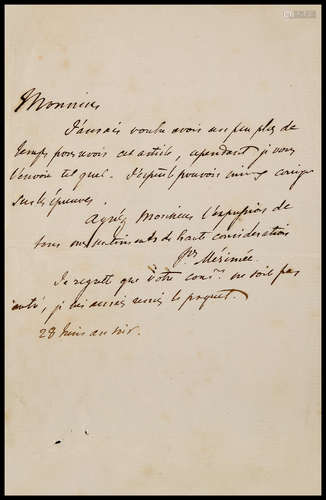 Monsieur
J'aurais voulu avoir un peu plus de
temps pour revoir cet article, cependant je vous
l'envoie tel quel. J'espère pouvoir mieux corriger
sur les épreuves.
Agréez Monsieur l'expression de
tous mes sentiments de haute considération
Pr Mérimée
Je regrette que votre ne soit pas
entré, je lui aurais remis le paquet.
28 au soir.